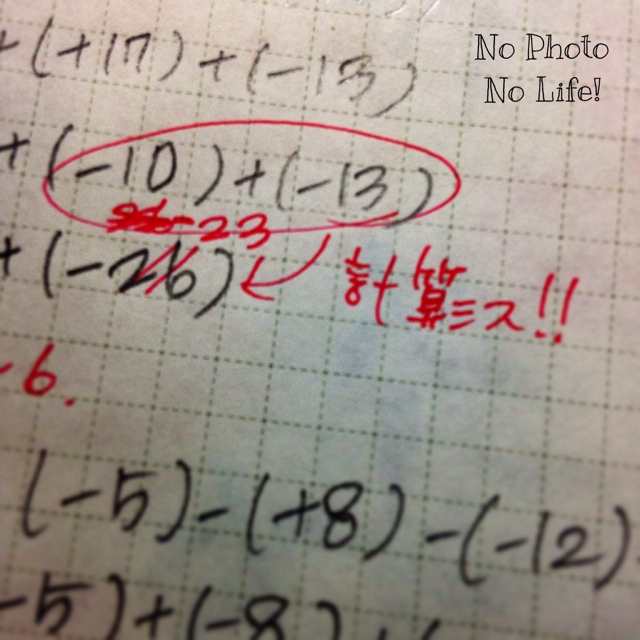 No Photo
No Life!
+(+17)+(-13)
+(-10)+(-13)
-23
+(-26)
計算ミス!!
-6.
(-5)-(+8)-(-12)
-5)+(-8)+(